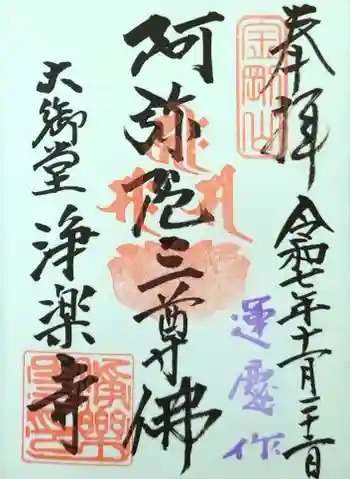 奉拝
令和七年十一月二十二日
金剛山
運慶作
阿弥陀三尊佛
大御堂
浄楽寺